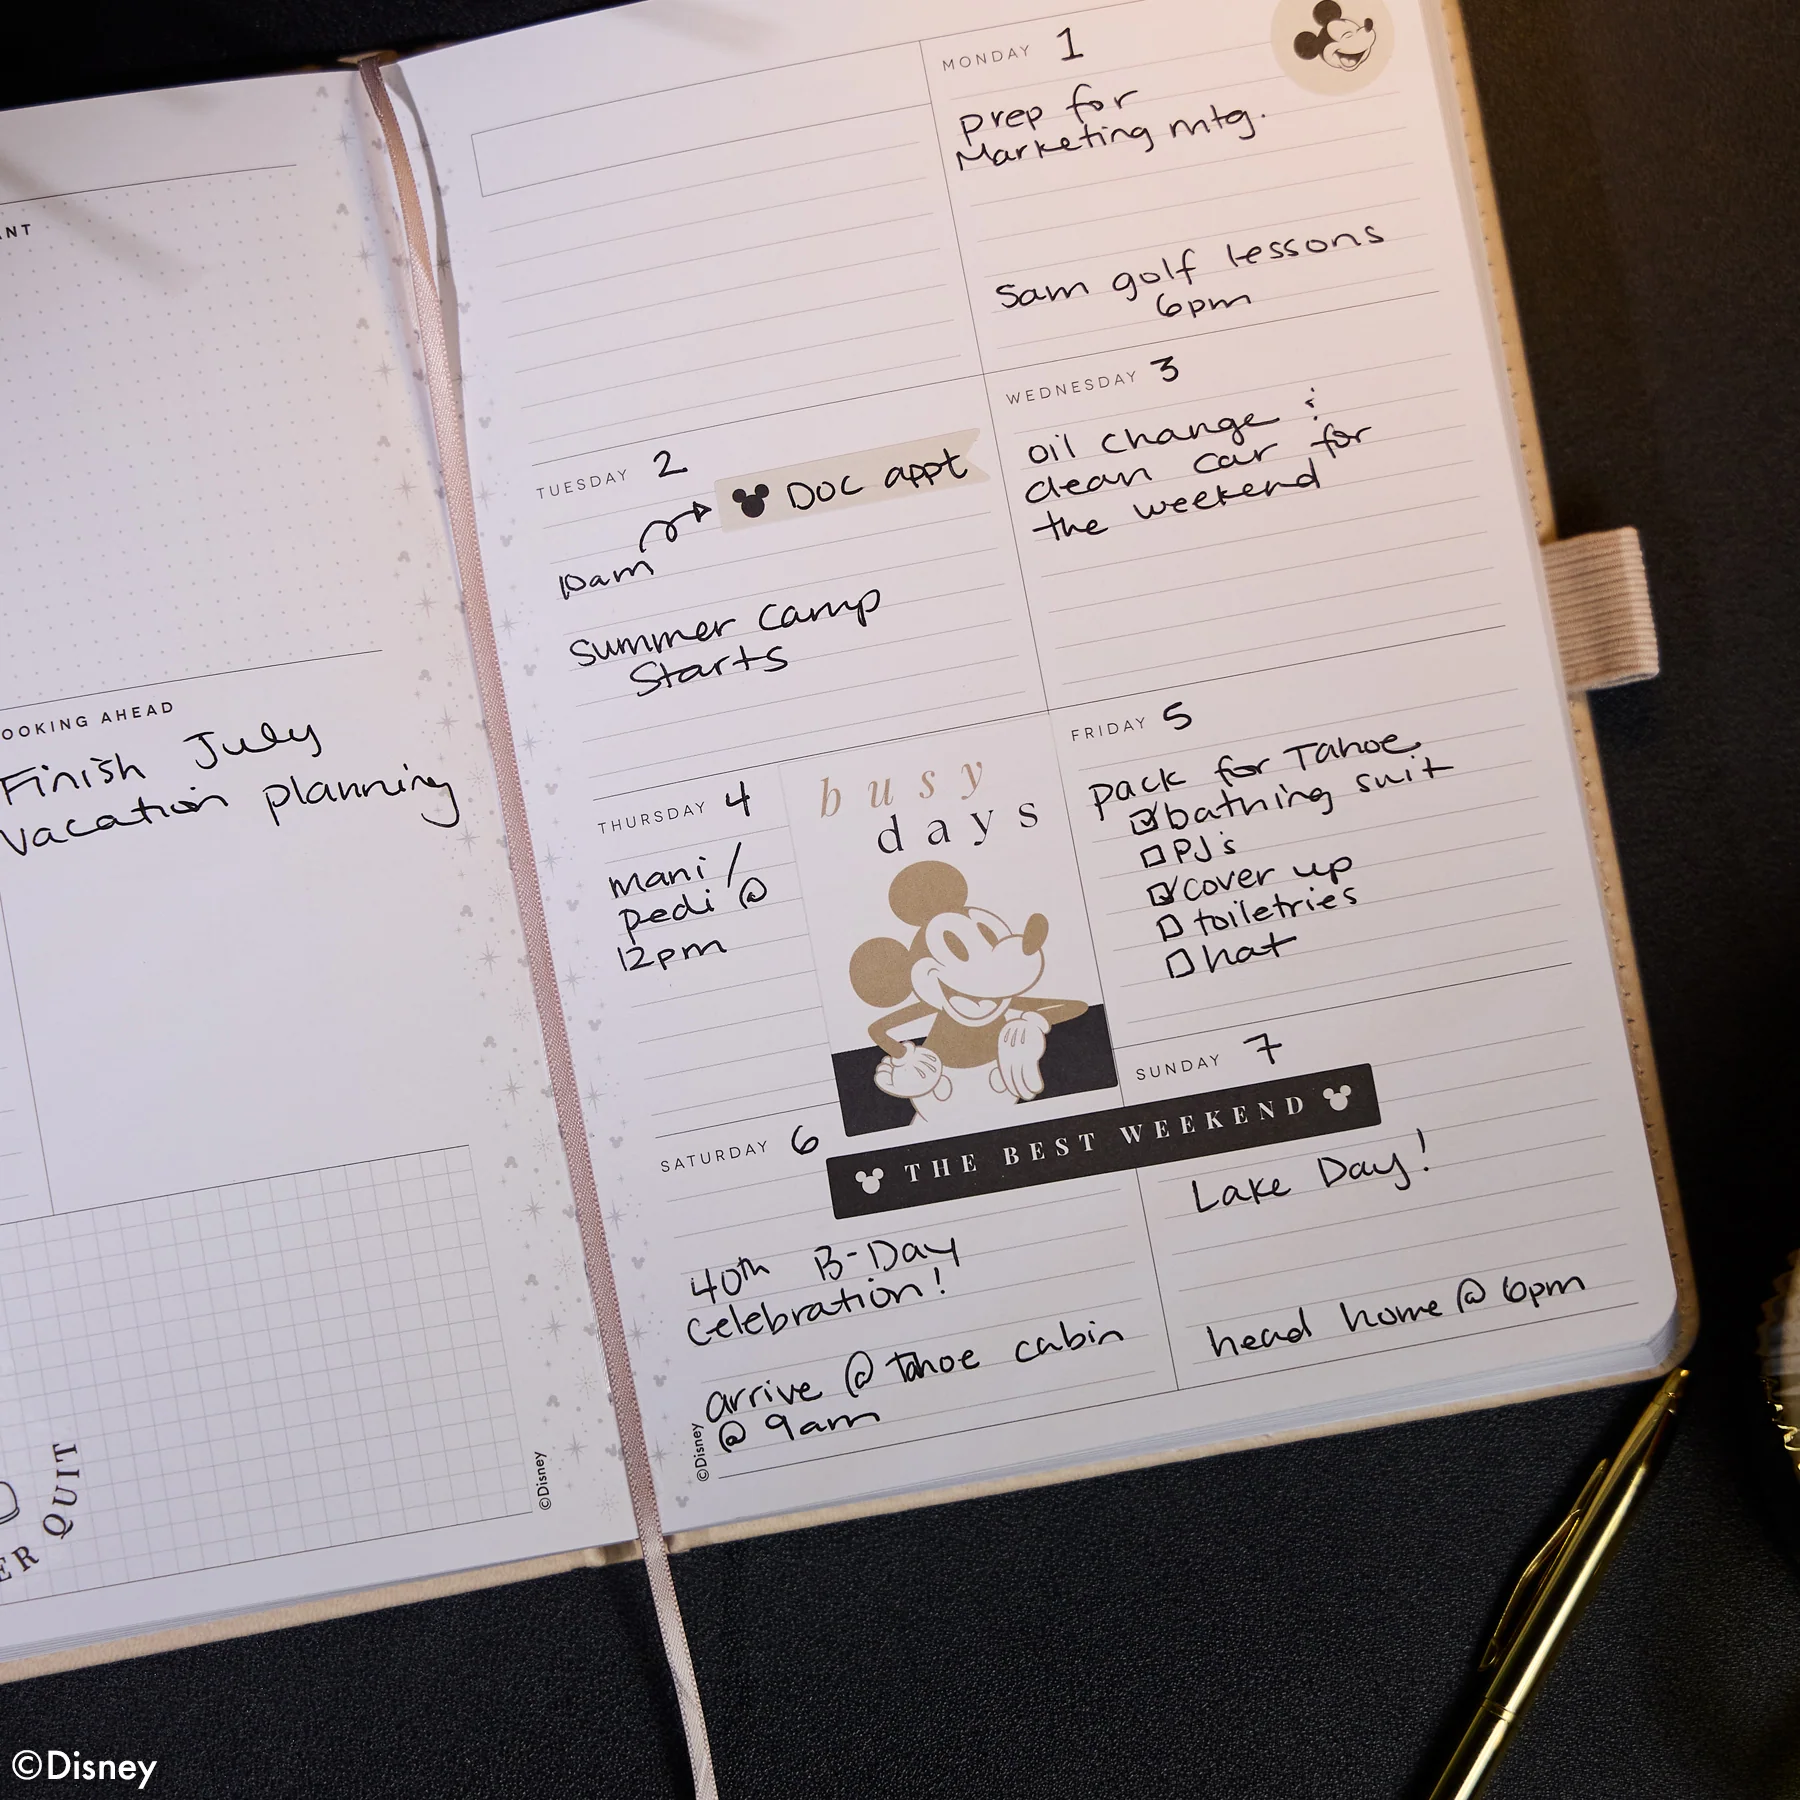 ANT
OOKING AHEAD
Finish July
vacation planning
ER QUIT
©Disney
MONDAY 1
prep for
Marketing mtg.
Sam golf lessons
6pm
TUESDAY 2
DOC appt
10am
Summer Camp
Starts
WEDNESDAY 3
oil change &
clean car for
the weekend
THURSDAY 4
mani/
pedi @
12pm
busy
days
FRIDAY 5
pack for Tahoe
bathing suit
PJ's
cover up
toiletries
hat
SATURDAY 6
THE BEST WEEKEND
40th B-Day
celebration!
arrive @ tahoe cabin
@ 9am
©Disney
SUNDAY 7
Lake Day!
head home @ 6pm
©Disney